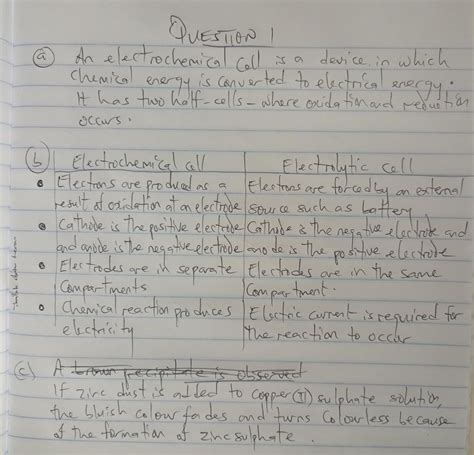 QUESTION 1
(a) An electrochemical cell is a device in which
chemical energy is converted to electrical energy.
It has two half-cells - where oxidation and reduction
occurs.
(b) Electrochemical cell | Electrolytic cell
• Electrons are produced as a | Electrons are forced by an external
result of oxidation at an electrode | source such as battery
• Cathode is the positive electrode | Cathode is the negative electrode and
and anode is the negative electrode | anode is the positive electrode
• Electrodes are in separate | Electrodes are in the same
compartments | compartment.
• Chemical reaction produces | Electric current is required for
electricity | the reaction to occur
(c) A brown precipitate is observed
If zinc dust is added to copper (II) sulphate solution,
the bluish colour fades and turns colourless because
of the formation of zinc sulphate.